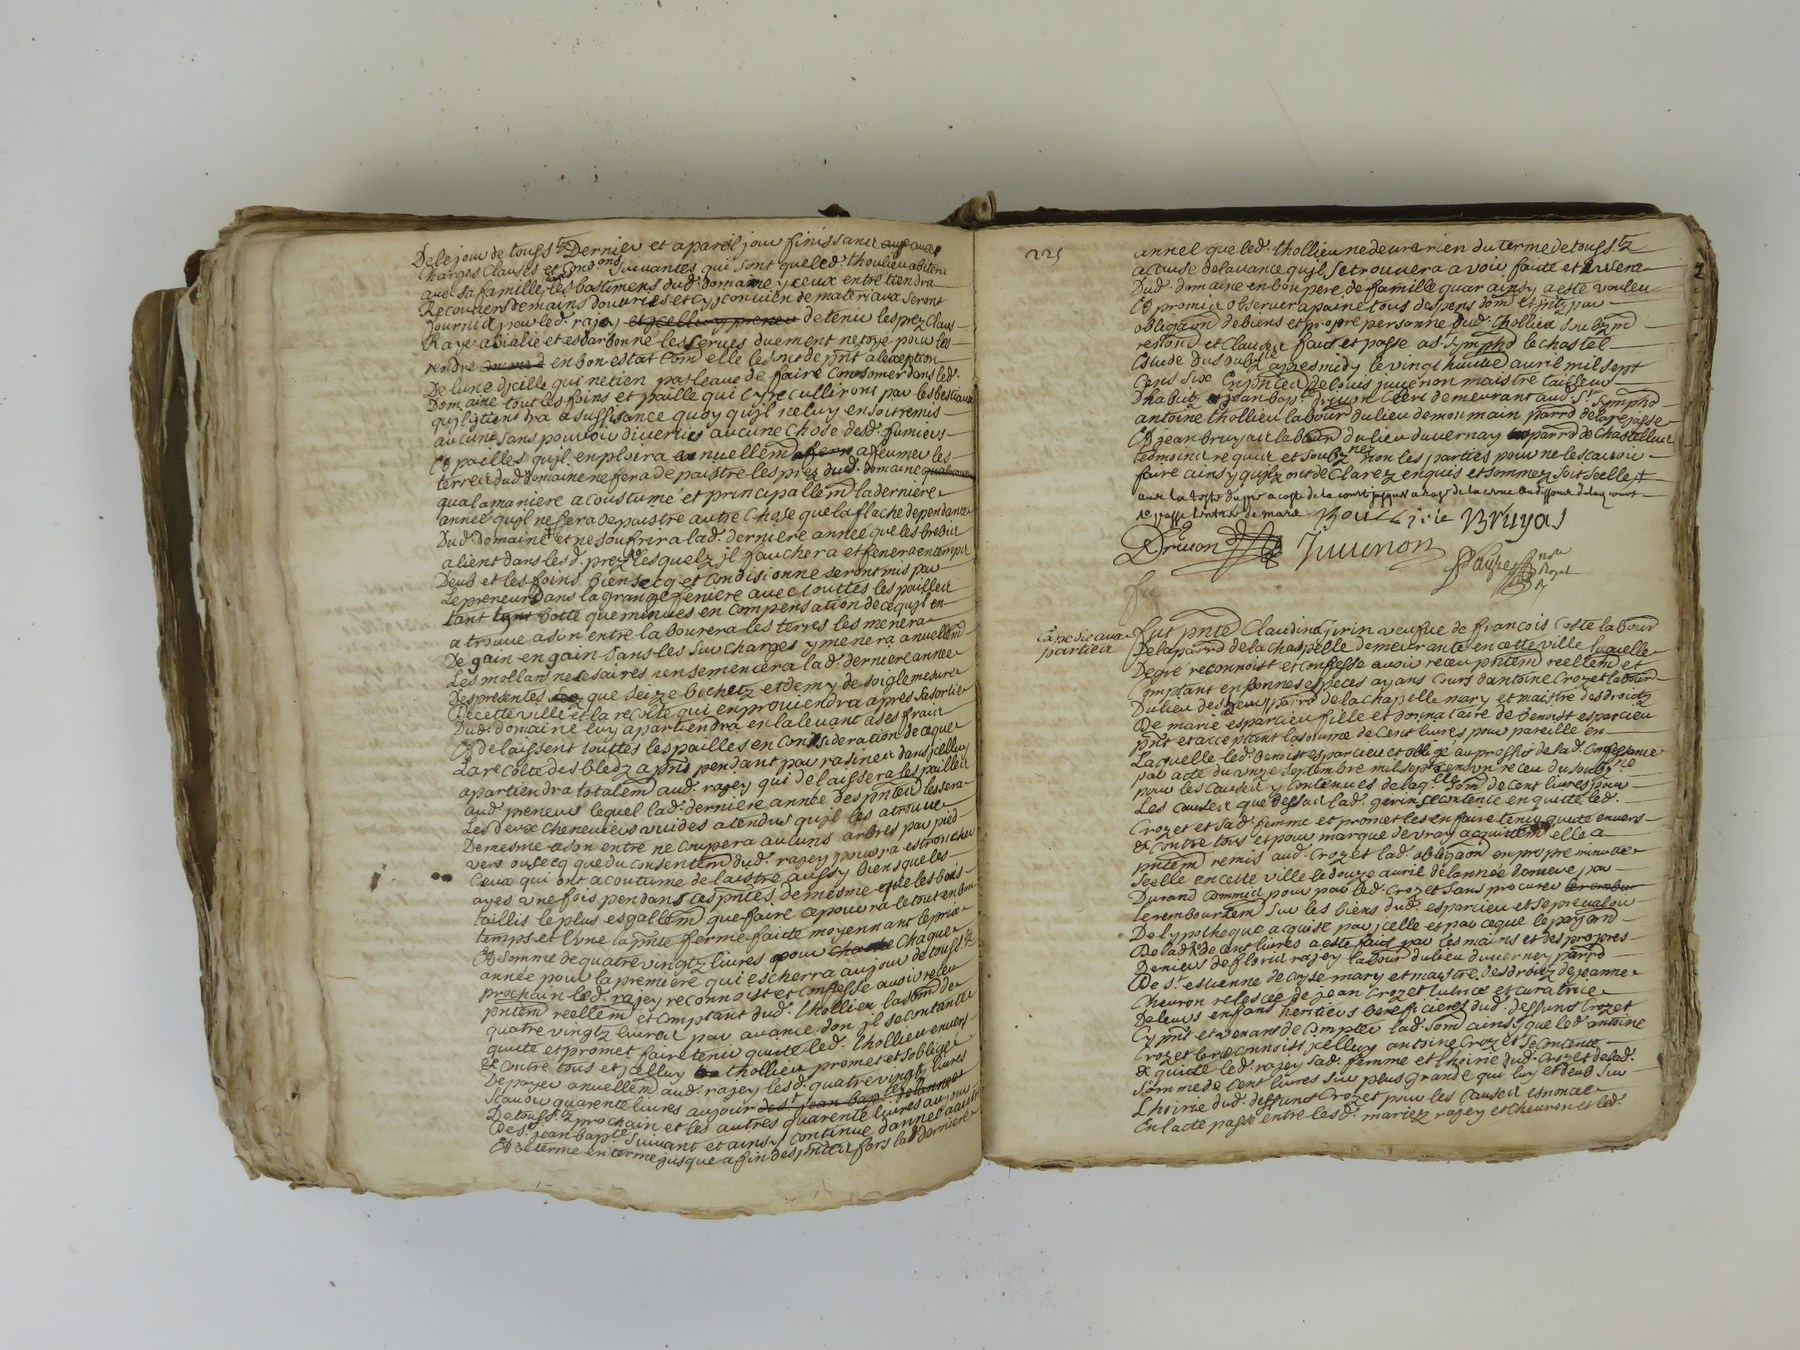 De le jour de touss.tz Dernier et apareil jour finissant
Charges Clauses et Cond.ons suivantes qui sont que led. thoulieu abitera
avec sa famille les bastimens dud. domaine yceux entretiendra
Recouvrir de mains douvries et cy convien de materiaux seront
fournis par led. rajey et ycelluy preneu de tenir les prez Claus
en bon estat
De lune dicelle qui netien pas leaue de faire Consomer dans led.
Domaine tout les foins et paille qui cy reculliront par les bestiaux
quil y tiendra a suffisance quoy quil ne luy en soit remis
aucune sans pouvoir divertir aucune Chose desd. fumiers
Et pailles quil enploira annuellem a feumer les
terres dud. domaine ne fera de paistre les prez dud. domaine
qua la maniere acoustumé et principallem la derniere
annee quil ne fera de paistre autre Chose que la flache dependante
Dud. domaine et ne soufrira lad. derniere année que les brebis
alient dans les d. prez lesquelz jl fauchera et fenera en temps
Deub et les foins bien sec q et Condisionne seront mis par
Le preneur dans la grange feniere avec touttes les pailles
tant botte que menues en compensation de ce quil en
a trouve a son entre labourera les terres les menera
De gain en gain sans les surcharges y menera anuellem
Les mollans necesaires rensemencera lad. derniere annee
Des presentes que seize bichetz et demy de soigle mesure
De cette ville et la recolte qui en proviendra apres sa sortie
Dud. domaine luy apartiendra en la levant a ses frais
Et delaissent touttes les pailles en Consideration de ce que
La recolte des bledz apnt pendant par rasines dans jcelluy
apartiendra totalem aud. rajey qui delaissera les pailles
aud. preneur lequel lad. derniere année des pntes lessera
Les deux cheneviers vuides atendus quil les a trouve
De mesme a son entre ne coupera aucuns arbres par pied
vers ou secq que du consentem dud. rajey pourra estroncher
Ceux qui ont acoutume de laistre aussy bien que les
ayes une fois pendans ces pntes de mesme que les bois
taillis le plus esgallem que faire ce poura le tout en bon
temps et lune la pnte ferme faicte moyennant le prix
Et Somme de quatre vingtz livres pour chaque
année pour la premiere qui escherra au jour de touss.tz
prochain led. rajey reconnoist et Confesse avoir receu
pntem reellem et Comptant dud. thollieu la som de
quatre vingtz livres par avance don jl se contante
quite et promet faire tenir quite led. thollieu envers
et Contre tous et jcelluy thollieu promet et soblige
De payer anuellem aud. rajey lesd. quatre vingtz livres
Scavoir quarente livres au jour
De touss.tz prochain et les autres quarente livres au jour
De s.t jean bap.te suivant et ainsy continue dannee a autre
Et de terme en terme jusque a fin des pntes fors la derniere
225
annee que led. thollieu ne devra rien du terme de touss.tz
a cause de lavance quil se trouvera avoir faite et
Dud. domaine en bon pere de famille quar ainsy a este vouleu
Et promis observer a paine tous despens dom et jntz par
obligaon de biens et propre personne dud. thollieu soubzm
renond et Clauses fait et passe a s.t Symphd le chastel
Estude du soubs.ne apres midy le vingt huitie avril mil sept
Cens six En pntce de louis juvenon maistre tailleur
Dhabitz et jean bap.te druon Clerc demeurant aud. s.t Symphd
antoine thollieu labour du lieu de monmain parrd de larejasse
Et jean bruyas labour du lieu du vernay parrd de Chastellus
tesmoins requis et soubz.nes non les parties pour ne scavoir
faire ainsy quilz ont declarez enquis et sommez soit seelle
Bruyas
Druon Juvenon
Royal
Fu
partiea
Fut pnte Claudine jirin veufue de francois Coste labour
De la parrd de la chaspelle demeurante en cette ville laquelle
De gre reconnoist et confesse avoir receu pntem reellem et
Comptant en bonnes especes ayans Cours dantoine Crozet labour
Du lieu des parrd de la chapelle mary et maistre des droitz
De marie esparcieu fille et donnataire de benoist esparcieu
pnt et acceptant la somme de Cent livres pour pareille en
Laquelle led. benoist esparcieu et obligé au proffit de lad. Confessante
par acte du unze septembre mil sept cens un receu du soubz.ne
pour les Causes y contenues de laq.lle som de Cent livres pour
Les Causes que dessus lad. gerin ce contente en quitte led.
Crozet et sad. femme et promet les en faire tenir quite envers
et Contre tous et pour marque de vray acquittem elle a
pntem remis aud. Crozet lad. obligaon en propre minutte
Seelle en cette ville le douze avril de lannée derniere par
Durand Commis pour par led. Crozet sans procurer
le remboursem sur les biens dud. esparcieu et se prevaloir
De lypotheque acquise par jcelle et par ce que le payem
De lad. som de Cent livres a este fait par les mains et des propres
Deniers de floris rajey labour du lieu du verney parrd
De s.t estienne de Coyse mary et maistre des droitz de jeanne
Chevron relescee de jean Crozet tutrice et curatrice
De leurs enffans heritiers beneficieres dud. deffunt Crozet
Cy pnt et venans de Compter lad. som ainsy que led. antoine
Crozet le reconnoist jcelluy antoine Crozet se contente
et quitte led. rajey sad. femme et lhoirie dud. Crozet de lad.
Somme de Cent livres sur plus grande qui luy et deub sur
Lhoirie dud. deffunt Crozet pour les Causes Esnonce
En lacte passé entre lesd. mariez rajey et chevron et led.